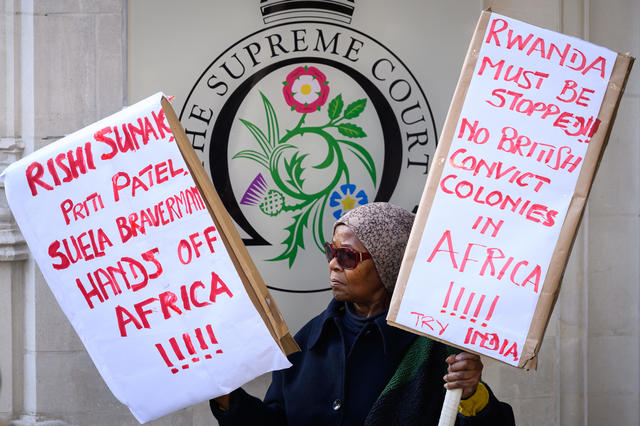 THE SUPREME COURT
RISHI SUNAK
PRITI PATEL
SUELA BRAVERMAN
HANDS OFF
AFRICA
!!!!!
RWANDA
MUST BE
STOPPED!!
NO BRITISH
CONVICT
COLONIES
IN
AFRICA
!!!!!
TRY INDIA